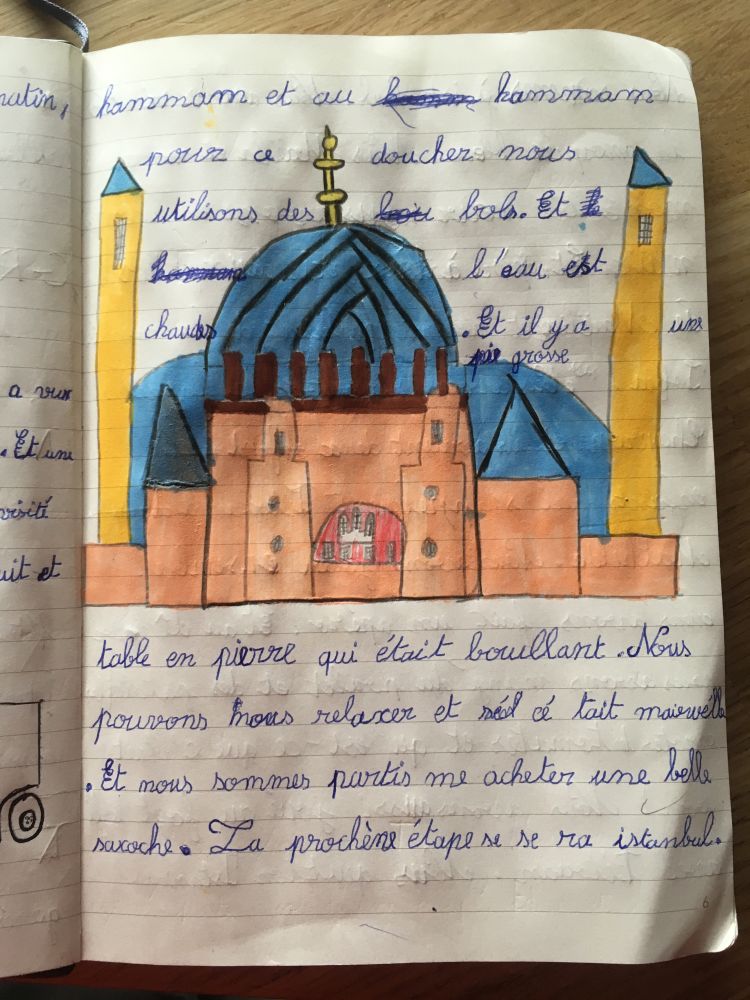 hammam et au hammam
pour ce doucher nous
utilisons des bols. Et
l'eau est
chaudes . Et il y a une
grosse
table en pierre qui était bouillant. Nous
pouvons nous relaxer et cé tait
. Et nous sommes partis me acheter une belle
saxoche. La prochène étape se se ra istanbul.
6
matin,
a vux
. Et une
visité
uit et